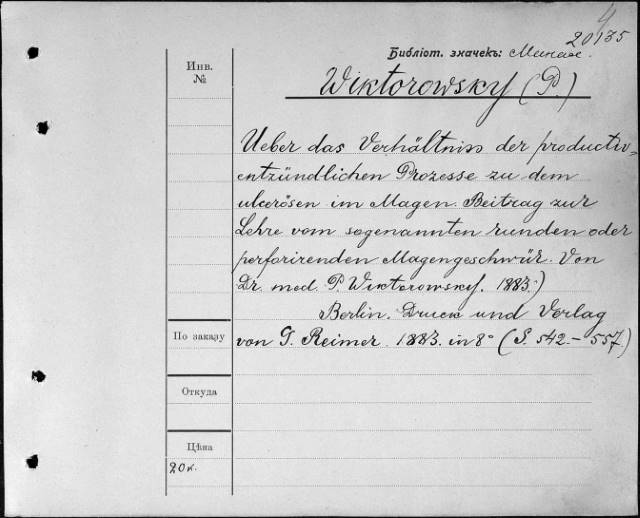 4
20135
Библіот. значекъ:
Инв.
№
Wiktorowsky (P.)
Ueber das Verhältniss der productiv-
entzündlichen Prozesse zu dem
ulcerösen im Magen. Beitrag zur
Lehre vom sogenannten runden oder
perforirenden Magengeschwür. Von
Dr. med. P. Wiktorowsky. 1883.)
Berlin. Druck und Verlag
По заказу
von G. Reimer. 1883. in 8° (S. 542.-557)
Откуда
Цѣна
20к.